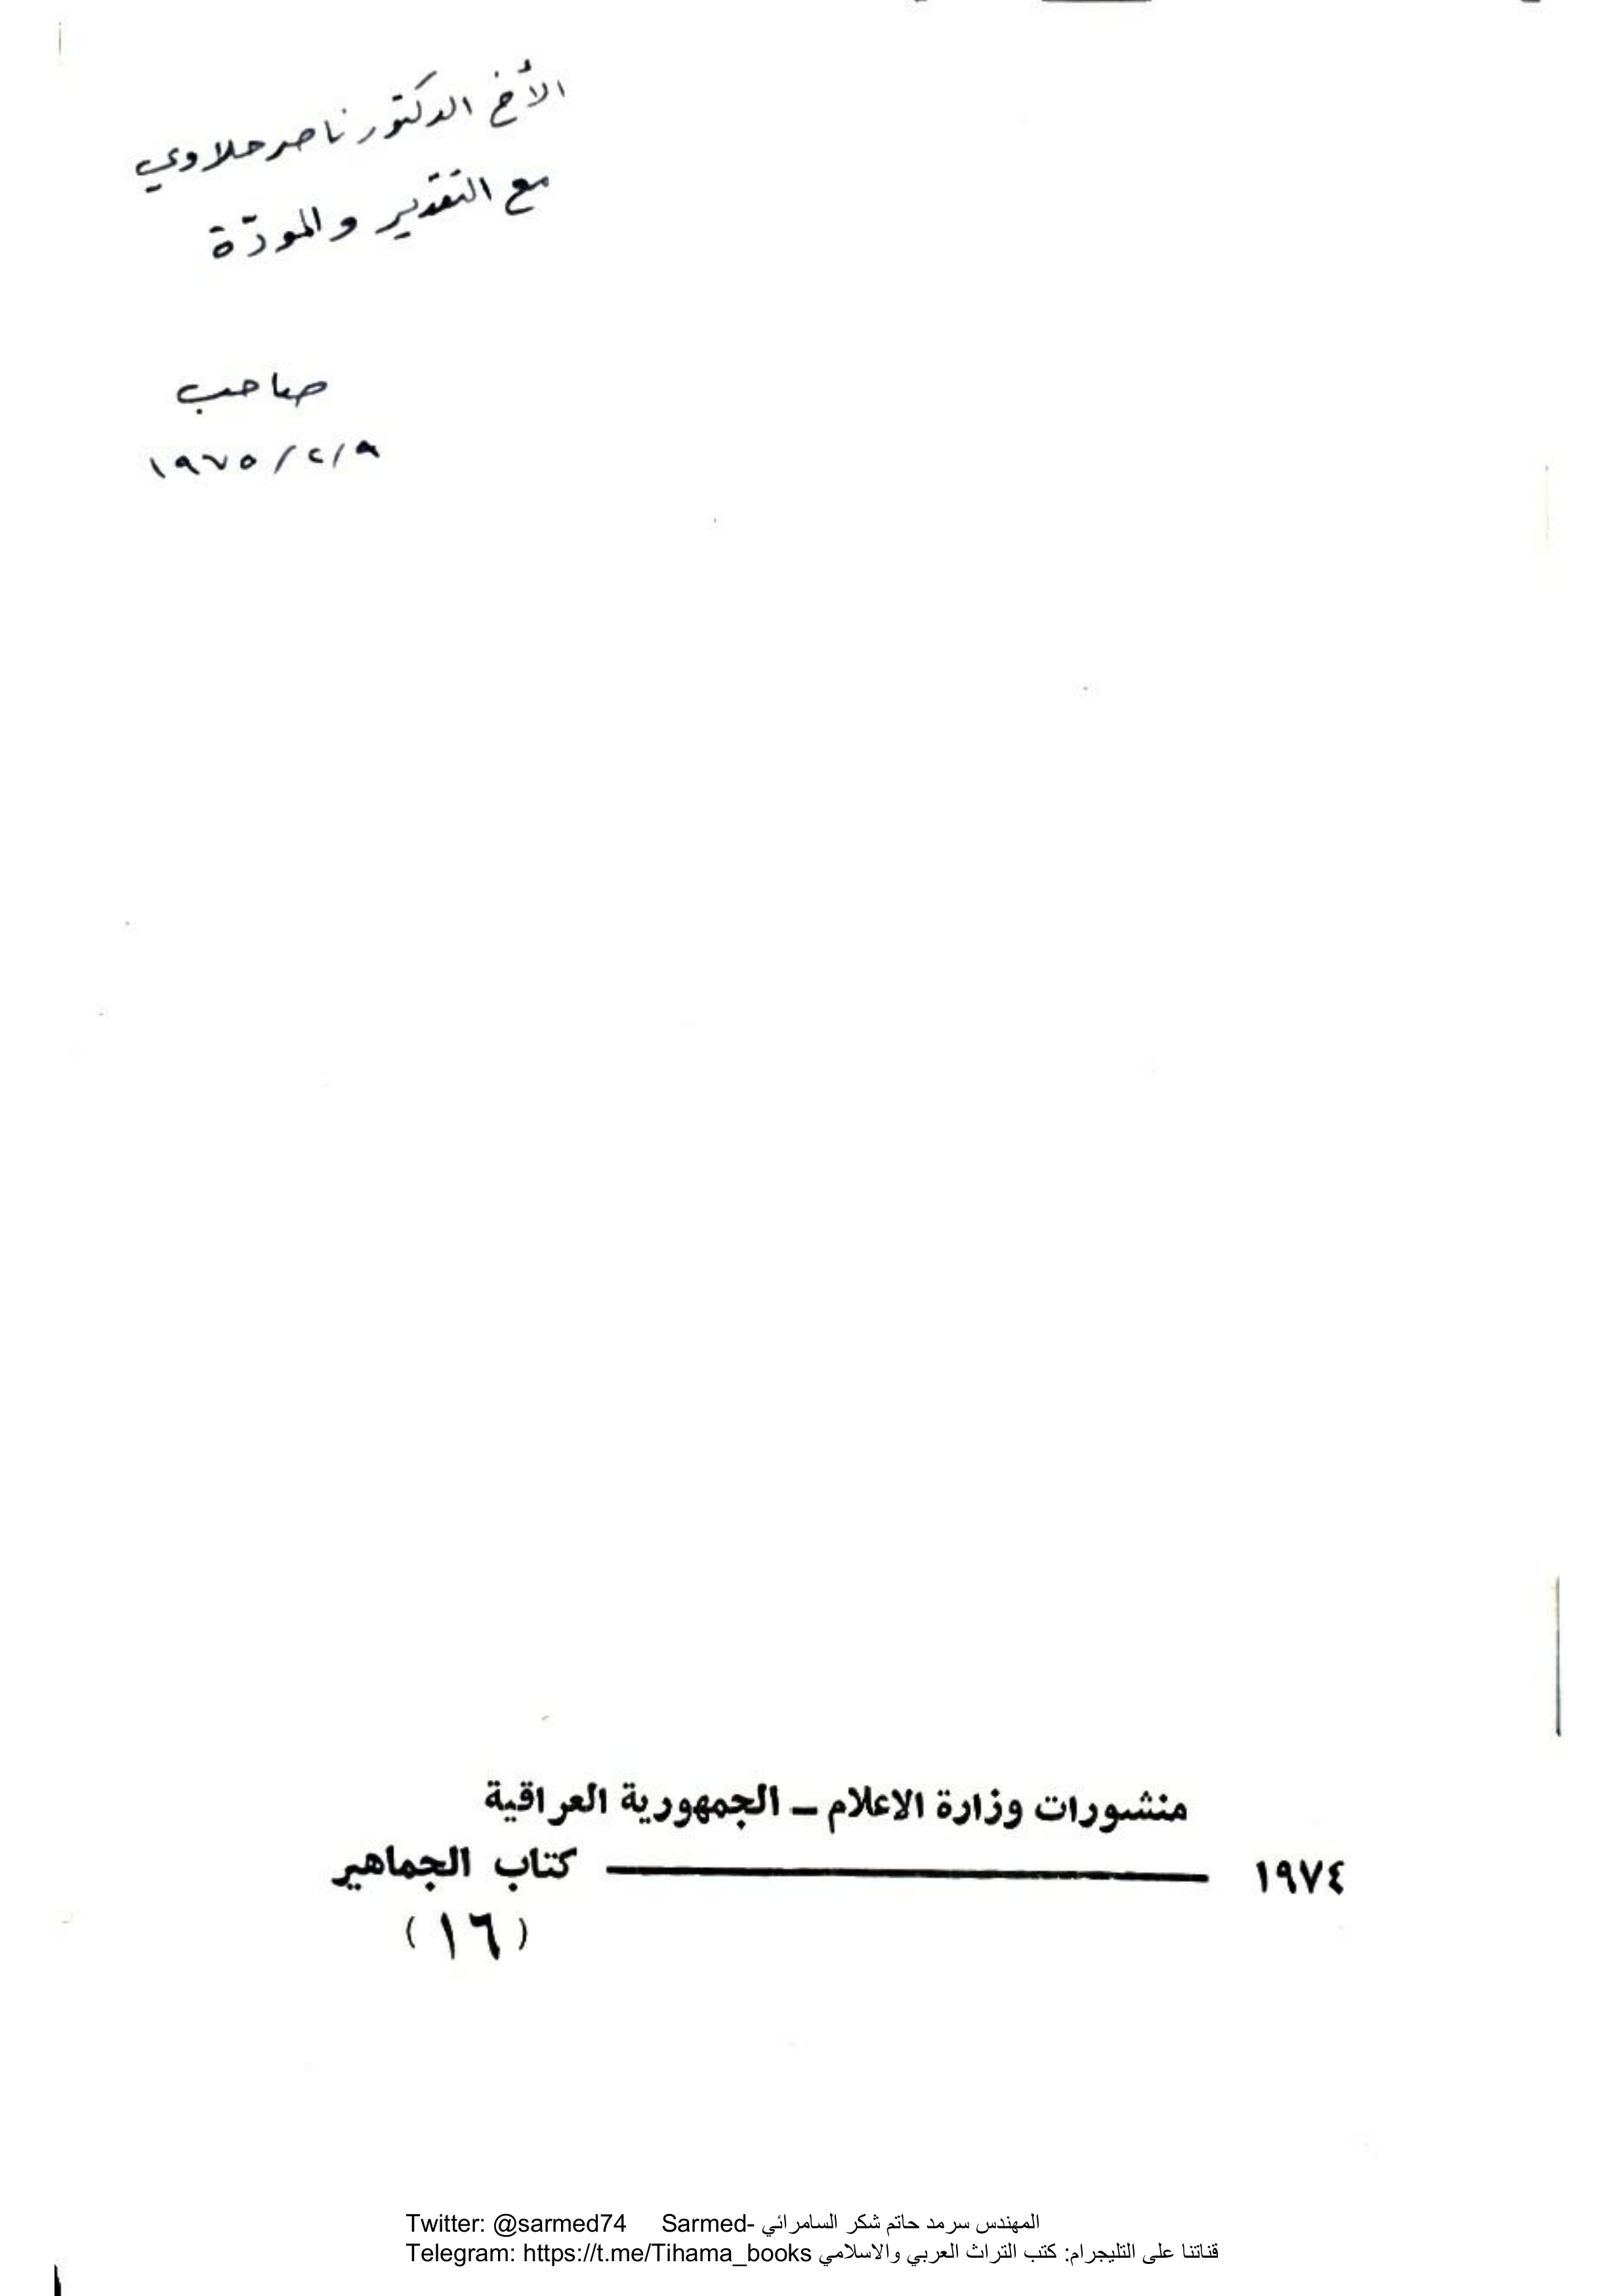 الأخ الدكتور ناصر حلاوي
مع التقدير والمودّة
صاحب
١٩٧٥/٢/٩
منشورات وزارة الاعلام – الجمهورية العراقية
١٩٧٤ كتاب الجماهير
(١٦)
Twitter: @sarmed74 Sarmed- المهندس سرمد حاتم شكر السامرائي
Telegram: https://t.me/Tihama_books قناتنا على التليجرام: كتب التراث العربي والاسلامي